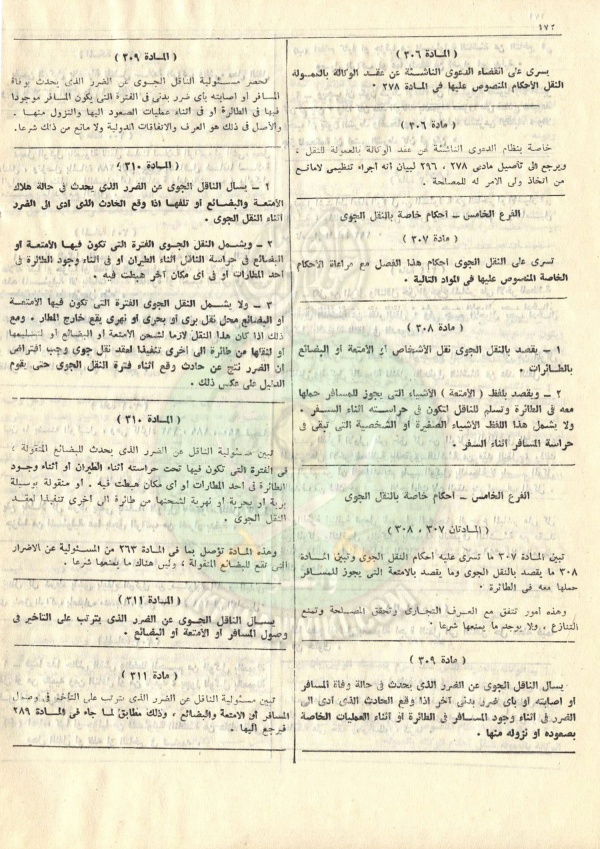 ١٧٢
( المادة ٣٠٦ )
يسرى على انقضاء الدعوى الناشئة عن عقد الوكالة بالعمولة
للنقل الأحكام المنصوص عليها فى المادة ٢٧٨ .
( مادة ٣٠٦ )
خاصة بنظام الدعوى الناشئة عن عقد الوكالة بالعمولة للنقل ،
ويرجع الى تأصيل مادتى ٢٧٨ ، ٢٩٦ لبيان أنه اجراء تنظيمى لامانع
من اتخاذ ولى الامر له للمصلحة .
الفرع الخامس – أحكام خاصة بالنقل الجوى
( مادة ٣٠٧ )
تسرى على النقل الجوى احكام هذا الفصل مع مراعاة الأحكام
الخاصة المنصوص عليها فى المواد التالية .
( مادة ٣٠٨ )
١ – يقصد بالنقل الجوى نقل الأشخاص أو الأمتعة او البضائع
بالطائرات .
٢ – ويقصد بلفظ ( الأمتعة ) الأشياء التى يجوز للمسافر حملها
معه فى الطائرة وتسلم للناقل لتكون فى حراسته اثناء السفر .
ولا يشمل هذا اللفظ الأشياء الصغيرة أو الشخصية التى تبقى فى
حراسة المسافر أثناء السفر .
الفرع الخامس – أحكام خاصة بالنقل الجوى
( المادتان ٣٠٧ ، ٣٠٨ )
تبين المادة ٣٠٧ ما تسرى عليه أحكام النقل الجوى وتبين المادة
٣٠٨ ما يقصد بالنقل الجوى وما يقصد بالامتعة التى يجوز للمسافر
حملها معه فى الطائرة .
وهذه امور تتفق مع العرف التجارى وتحقق المصلحة وتمنع
التنازع ، ولا يوجد ما يمنعها شرعا .
( مادة ٣٠٩ )
يسأل الناقل الجوى عن الضرر الذى يحدث فى حالة وفاة المسافر
او اصابته او بأى ضرر بدنى آخر اذا وقع الحادث الذى أدى الى
الضرر فى أثناء وجود المسافر فى الطائرة او أثناء العمليات الخاصة
بصعوده او نزوله منها .
( المادة ٣٠٩ )
تحصر مسئولية الناقل الجوى عن الضرر الذى يحدث بوفاة
المسافر او اصابته بأى ضرر بدنى فى الفترة التى يكون المسافر موجودا
فيها فى الطائرة او فى أثناء عمليات الصعود اليها والنزول منها .
والأصل فى ذلك هو العرف والاتفاقات الدولية ولا مانع من ذلك شرعا.
( المادة ٣١٠ )
١ – يسأل الناقل الجوى عن الضرر الذى يحدث فى حالة هلاك
الأمتعة والبضائع او تلفها اذا وقع الحادث الذى ادى الى الضرر
اثناء النقل الجوى .
٢ – ويشمل النقل الجوى الفترة التى تكون فيها الأمتعة او
البضائع فى حراسة الناقل اثناء الطيران او فى اثناء وجود الطائرة فى
احد المطارات او فى اى مكان آخر هبطت فيه .
٣ – ولا يشمل النقل الجوى الفترة التى تكون فيها الأمتعة
او البضائع محل نقل برى أو بحرى أو نهرى يقع خارج المطار . ومع
ذلك اذا كان هذا النقل لازما لشحن الأمتعة أو البضائع او لتسليمها
او لنقلها من طائرة الى اخرى تنفيذا لعقد نقل جوى وجب افتراض
ان الضرر نتج عن حادث وقع اثناء فترة النقل الجوى حتى يقوم
الدليل على عكس ذلك .
( المادة ٣١٠ )
تبين مسئولية الناقل عن الضرر الذى يحدث للبضائع المنقولة ،
فى الفترة التى تكون فيها تحت حراسته اثناء الطيران او أثناء وجود
الطائرة فى احد المطارات او اى مكان هبطت فيه . او منقولة بوسيلة
برية او بحرية او نهرية لشحنها من طائرة الى اخرى تنفيذا لعقد
النقل الجوى .
وهذه المادة تؤصل بما فى المادة ٢٦٣ من المسئولية عن الاضرار
التى تقع للبضائع المنقولة ، وليس هناك ما يمنعها شرعا .
( المادة ٣١١ )
يسأل الناقل الجوى عن الضرر الذى يترتب على التأخير فى
وصول المسافر أو الأمتعة أو البضائع .
( مادة ٣١١ )
تبين مسئولية الناقل عن الضرر الذى يترتب على التأخر فى وصول
المسافر او الامتعة والبضائع ، وذلك مطابق لما جاء فى المادة ٢٨٩
فيرجع اليها .